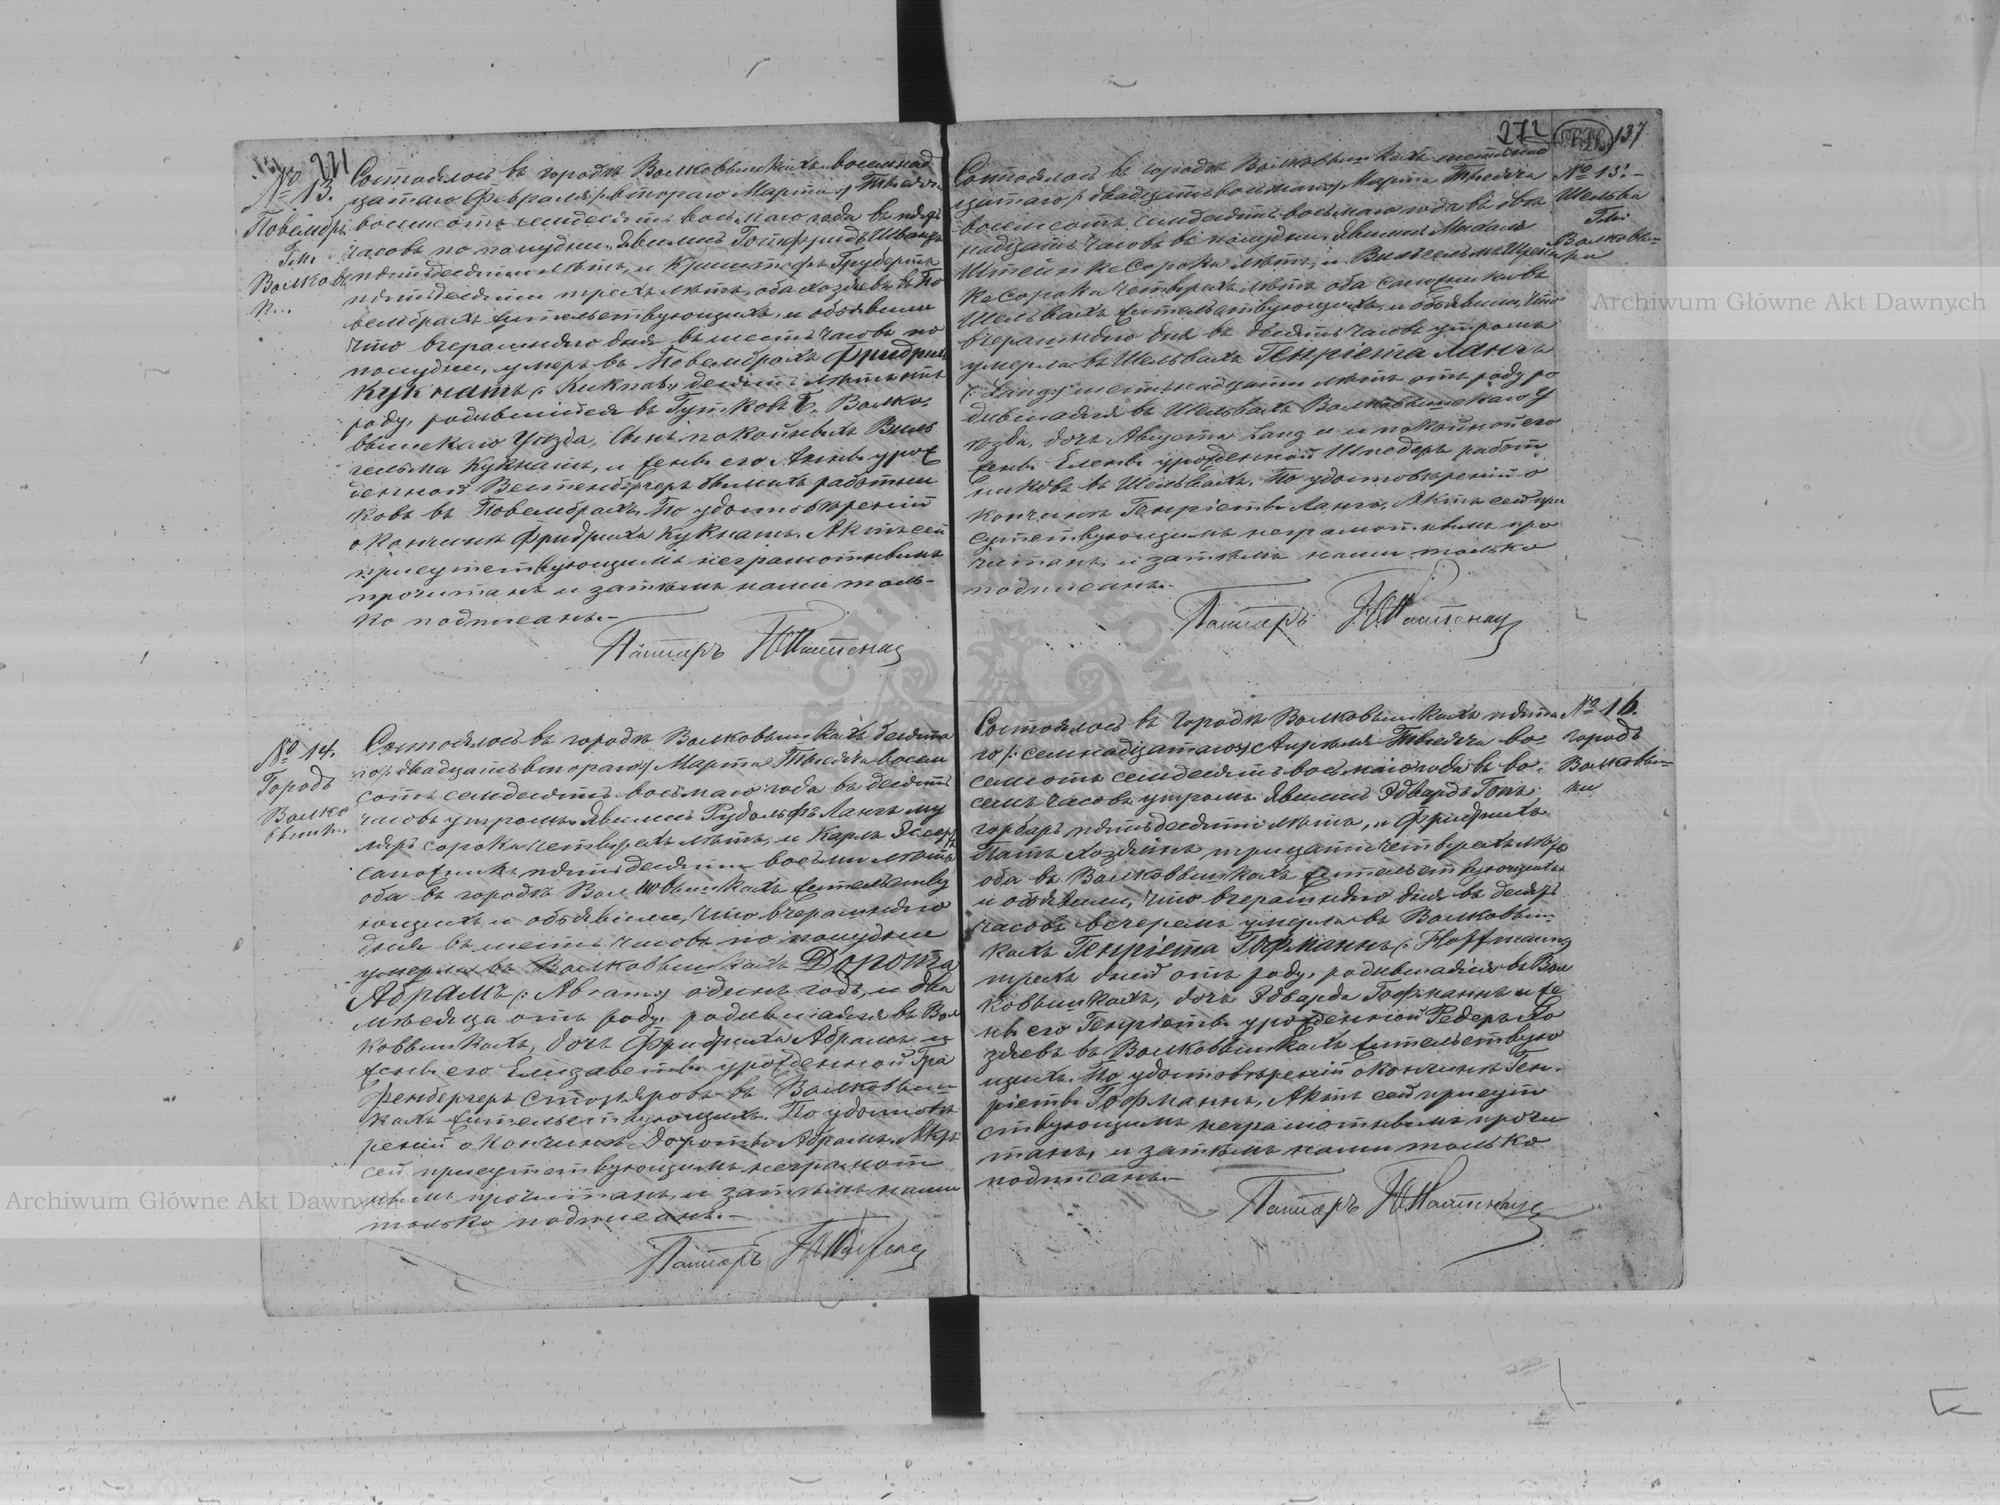 271
№ 13.
Повембры
Гм.
Волковы
Состоялось въ городѣ Волковышкахъ восемнад
цатаго Февраля (: втораго Марта :) Тысяча
восемсотъ семдесятъ восьмаго года въ пять
часовъ по полудни. Явились Готфридъ
пятидесяти лѣтъ, и Криштофъ Грубертъ
пятидесяти трехъ лѣтъ, оба хозяева въ По
вембрахъ жительствующихъ, и объявили
что вчерашняго дня въ шесть часовъ по
полудни, умеръ въ Повембрахъ Фридрихъ
Кукнатъ (: Kuknat :) десять лѣтъ отъ
роду, родившійся въ Гутковѣ Б. Волко
вышскаго Уѣзда, сынъ покойныхъ Виль
гельма Кукнатъ, и жены его Анны урож
денной Вестенбергеръ бывшихъ работни
ковъ въ Повембрахъ. По удостовѣреніи
о кончинѣ Фридриха Кукнатъ, Актъ сей
присутствующимъ неграмотнымъ
прочитанъ и затѣмъ нами толь-
ко подписанъ.-
Пасторъ
№ 14.
Городъ
Волко
вышки.
Состоялось въ городѣ Волковышкахъ десята
го (: двадцать втораго :) Марта Тысяча восем
сотъ семдесятъ восьмаго года въ десять
часовъ утромъ. Явились Рудольфъ Лангъ му
ляръ сорока четырехъ лѣтъ, и Карлъ
сапожникъ пятидесяти восьми лѣтъ
оба въ городѣ Волковышкахъ жительству
ющихъ и объявили, что вчерашняго
дня въ шесть часовъ по полудни
умерла въ Волковышкахъ Дорота
Абрамъ (: Abram :) одинъ годъ, и два
мѣсяца отъ роду, родившаяся въ Вол
ковышкахъ, дочь Фридриха Абрамъ и
жены его Елизаветы урожденной Гра
фенбергеръ столяровъ въ Волковыш
кахъ жительствующихъ. По удостовѣ
реніи о кончинѣ Дороты Абрамъ, Актъ
сей присутствующимъ неграмот
нымъ прочитанъ, и затѣмъ нами
только подписанъ.-
Пасторъ
272
137
№ 15.-
Шельвы
Гм.
Волковы-
шки
Состоялось въ городѣ Волковышкахъ шестнад
цатаго (: двадцать восьмаго :) Марта Тысяча
восемсотъ семдесятъ восьмаго года въ двѣ
надцать часовъ въ полудни. Явились Михаилъ
Штейнке сорока лѣтъ, и Вильгельмъ Штейн
ке сорока четырехъ лѣтъ оба сапожники въ
Шельвахъ жительствующихъ, и объявили, что
вчерашняго дня въ десять часовъ утромъ
умерла въ Шельвахъ Генріета Лангъ
(: Lang :) шестьнадцати лѣтъ отъ роду ро
дившаяся въ Шельвахъ Волковышскаго У
ѣзда, дочь Августа Lang и и покойной его
жены Елены урожденной Шпедеръ работ
никовъ въ Шельвахъ. По удостовѣреніи о
кончинѣ Генріеты Лангъ, Актъ сей при
сутствующимъ неграмотнымъ про
читанъ, и затѣмъ нами только
подписанъ.-
Пасторъ
№ 16.
городъ
Волковыш-
ки
Состоялось въ городѣ Волковышкахъ пята
го (: семнадцатаго :) Апрѣля Тысяча во-
семсотъ семдесятъ восьмаго года въ во-
семь часовъ утромъ. Явились Эдвардъ Гопъ
горбаръ пятидесяти лѣтъ, и Фридрихъ
Патъ хозяинъ тридцати четырехъ лѣтъ
оба въ Волковышкахъ жительствующихъ
и объявили, что вчерашняго дня въ десять
часовъ вечеромъ умерла въ Волковыш-
кахъ Генріета Гофманнъ (: Hoffmann :)
трехъ дней отъ роду, родившаяся въ Вол
ковышкахъ, дочь Эдварда Гофманнъ и же
ны его Генріеты урожденной Редеръ Хо
зяевъ въ Волковышкахъ жительствую
щихъ. По удостовѣреніи о кончинѣ Ген-
ріеты Гофманнъ, Актъ сей присут
ствующимъ неграмотнымъ прочи
танъ, и затѣмъ нами только
подписанъ.-
Пасторъ
Archiwum Główne Akt Dawnych
Archiwum Główne Akt Dawnych